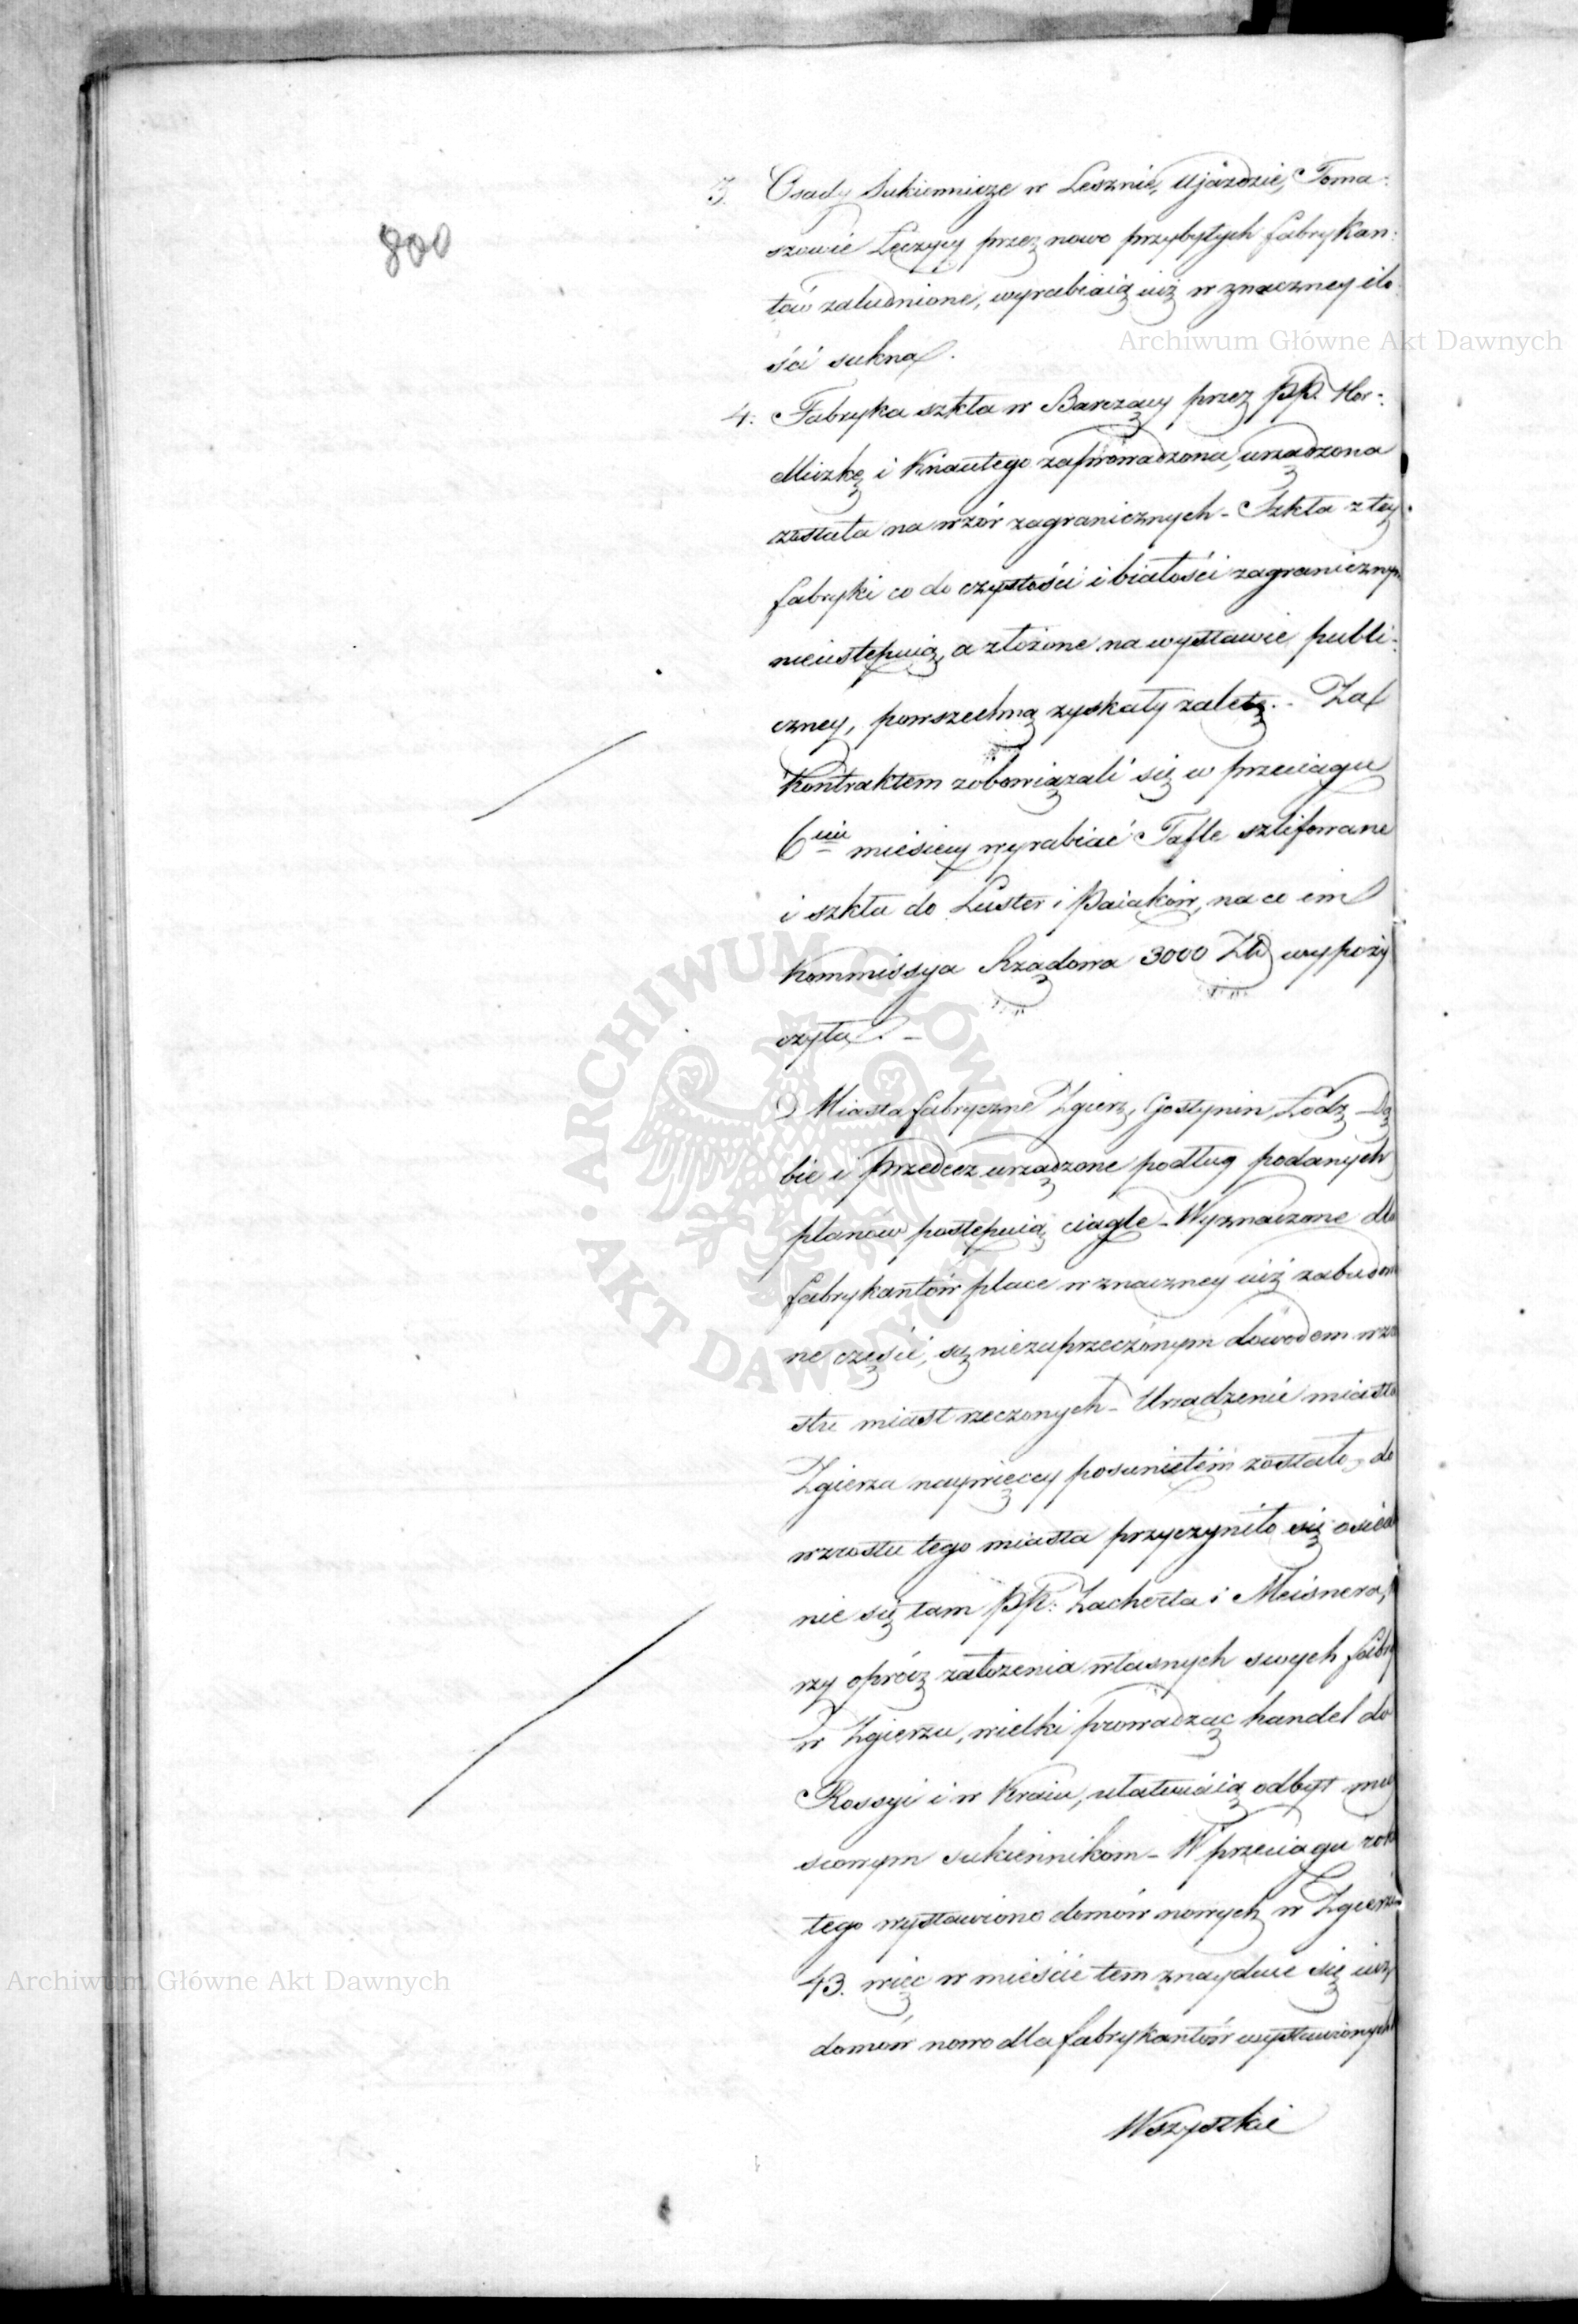 800
3. Osady Sukiennicze w Lesznie, Ujaździe, Toma-
szowie Łęczycy przez nowo przybyłych fabrykan-
tów zaludnione, wyrabiaią iuż w znaczney ilo
ści sukna.
4. Fabryka szkła w Barczący przez PP. Hor-
Miczkę i Knautego zaprowadzona, urządzona
została na wzór zagranicznych - Szkła z tey
fabryki co do czystości i białości zagranicznym
nieustępuią, a złożone na wystawie publi-
czney, powszechną zyskały zaletę. - Za
Kontraktem zobowiązali się w przeciągu
6ciu miesięcy wyrabiać Tafle szlifowane
i szkła do Luster i Paiaków, na co im
Kommissya Rządowa 3000 Złt wypoży
czyła. -
Miasta fabryczne Zgierz, Gostynin, Łódz, Dą
bie i Przedecz urządzone podług podanych
planów postępuią ciągle - Wyznaczone dla
fabrykantów place w znaczney iuż zabudowa
ne części, są niezaprzeczonym dowodem wzro
stu miast rzeczonych - Urządzenie miasta
Zgierza naywięcey posuniętém zostało, do
wzrostu tego miasta przyczyniło się osied
nie się tam PP: Zacherta i Meisnera,
rzy oprócz założenia własnych swych fabry
w Zgierzu, wielki prowadząc handel do
Rossyi i w Kraiu, ułatwiaią odbyt miey
scowym sukiennikom - W przeciągu roku
tego wystawiono domów nowych w Zgierzu
43. więc w mieście tem znayduie się iuż
domów nowo dla fabrykantów wystawionych
Wszystkie
Archiwum Główne Akt Dawnych
ARCHIWUM GŁÓWNE · AKT DAWNYCH ·
Archiwum Główne Akt Dawnych